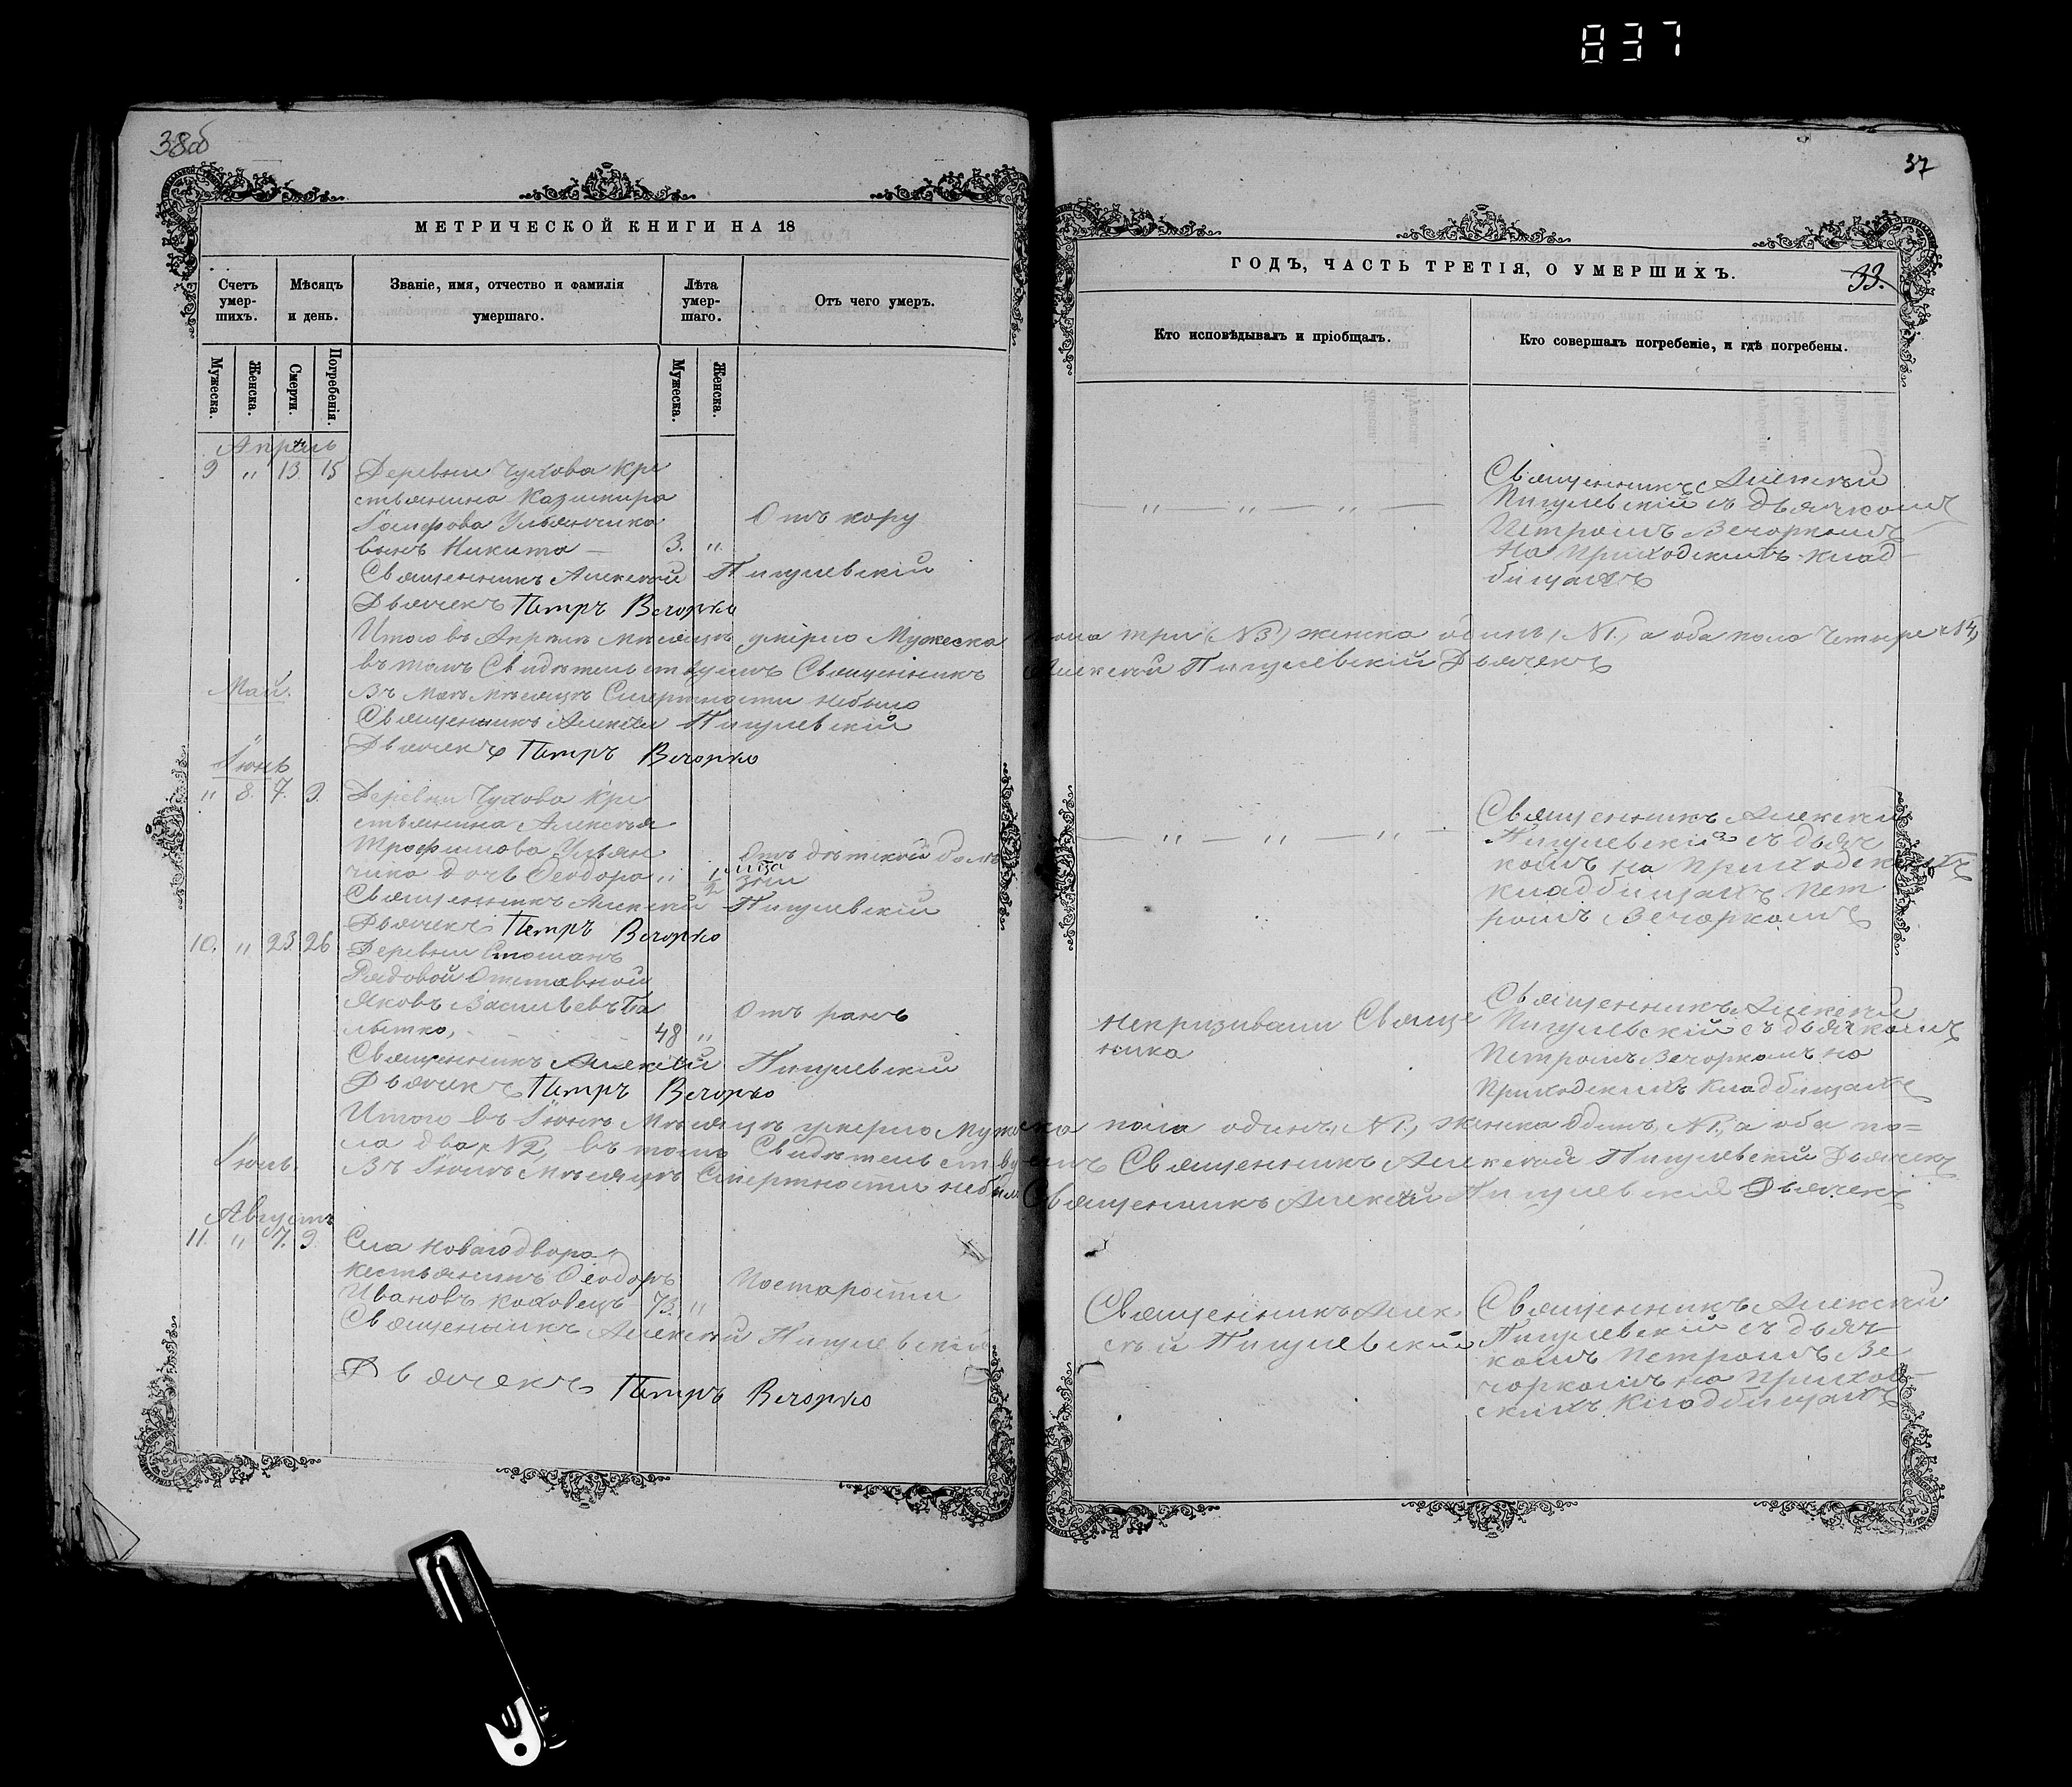 837
38об
37
МЕТРИЧЕСКОЙ КНИГИ НА 18
ГОДЪ, ЧАСТЬ ТРЕТІЯ, О УМЕРШИХЪ.
33.
Счетъ умер-шихъ.
Мѣсяцъ и день.
Званіе, имя, отчество и фамилія умершаго.
Лѣта умер-шаго.
Отъ чего умеръ.
Кто исповѣдывалъ и пріобщалъ.
Кто совершалъ погребеніе, и гдѣ погребены.
Мужеска.
Женска.
Смерти.
Погребенія.
Мужеска.
Женска.
Апрѣль
9 " 13 15
Деревни Чухова Кре
стьянина Казимира
Іосифова Ульянчика
сынъ Никита — 3. "
Отъ кору
— " — " — " —
Священникъ Алексѣй
Пигулевскій съ дьячкомъ
Петромъ Вечоркомъ
на Приходскихъ клад-
бищахъ
Священникъ Алексѣй Пигулевскій
Дьячекъ Петръ Вечорко
Итого въ Апрѣлѣ мѣсяцѣ умерло Мужеска пола три (№3) женска одинъ, №1., а оба пола Четыре №4,
въ томъ Свидѣтельствуемъ Священникъ Алексѣй Пигулевскій Дьячекъ
Май.
Въ Маѣ мѣсяцѣ Смертности небыло
Священникъ Алексѣй Пигулевскій
Дьячекъ Петръ Вечорко
Іюнь
" 8. 7. 9.
Деревни Чухова Кре
стьянина Алексѣя
Трофимова Ульян
чика дочь Ѳеодора " 1/2
Отъ дѣтской болѣ
зни
— " — " — " —
Священникъ Алексѣй
Пигулевскій съ дьяч
комъ на Приходскихъ
кладбищахъ Пет
ромъ Вечоркомъ
Священникъ Алексѣй Пигулевскій
Дьячекъ Петръ Вечорко
10. " 23. 26
Деревни
Рядовой Отставной
Яковъ Васильевъ Па
лытко, 48 "
Отъ ранъ
Непризивали Священ
ника
Священникъ Алексѣй
Пигулевскій съ дьячкомъ
Петромъ Вечоркомъ на
Приходскихъ Кладбищахъ
Священникъ Алексѣй Пигулевскій
Дьячекъ Петръ Вечорко
Итого въ Іюнѣ Мѣсяцѣ умерло Мужеска пола одинъ, №1., Женска Одинъ, №1., а оба по=
ла два, №2, въ томъ Свидѣтельствуемъ Священникъ Алексѣй Пигулевскій Дьячекъ
Іюль.
Въ Іюлѣ Мѣсяцѣ Смертности небыло Священникъ Алексѣй Пигулевскій Дьячекъ
Августъ
11. " 7. 9.
Села Новаго двора
кестьянинъ Ѳеодоръ
Ивановъ Коховецъ 73. "
Постарости
Священникъ Алек
сѣй Пигулевскій
Священникъ Алексѣй
Пигулевскій съ дьяч
комъ Петромъ Ве
чоркомъ на Приход-
скихъ Кладбищахъ
Священникъ Алексѣй Пигулевскій
Дьячекъ Петръ Вечорко